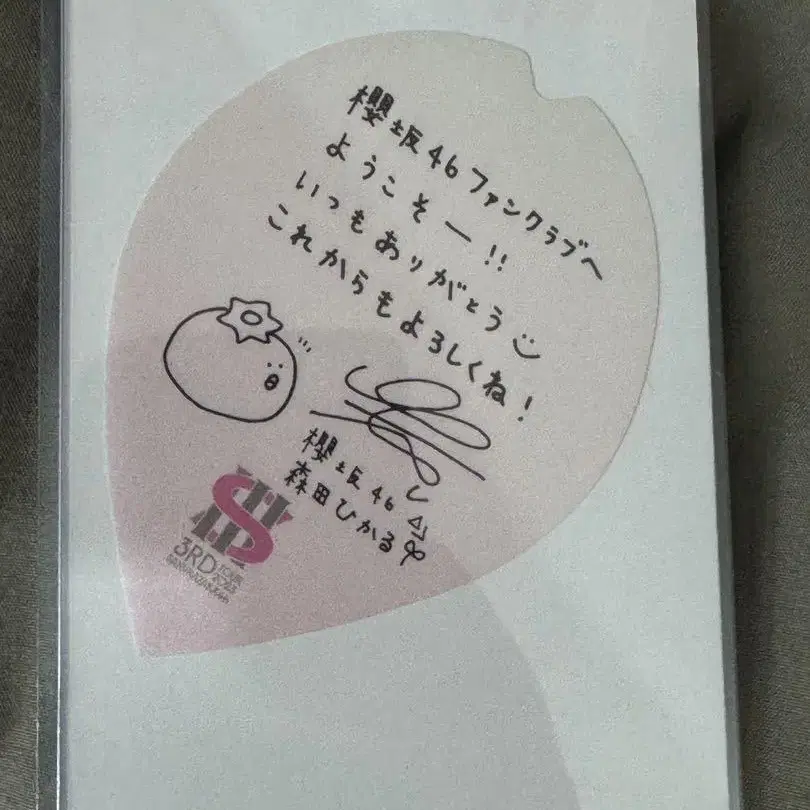 櫻坂46ファンクラブへ
ようこそー!!
いつもありがとう
これからもよろしくね!
櫻坂46
森田ひかる
3RD TOUR 2023
SAKURAZAKA46